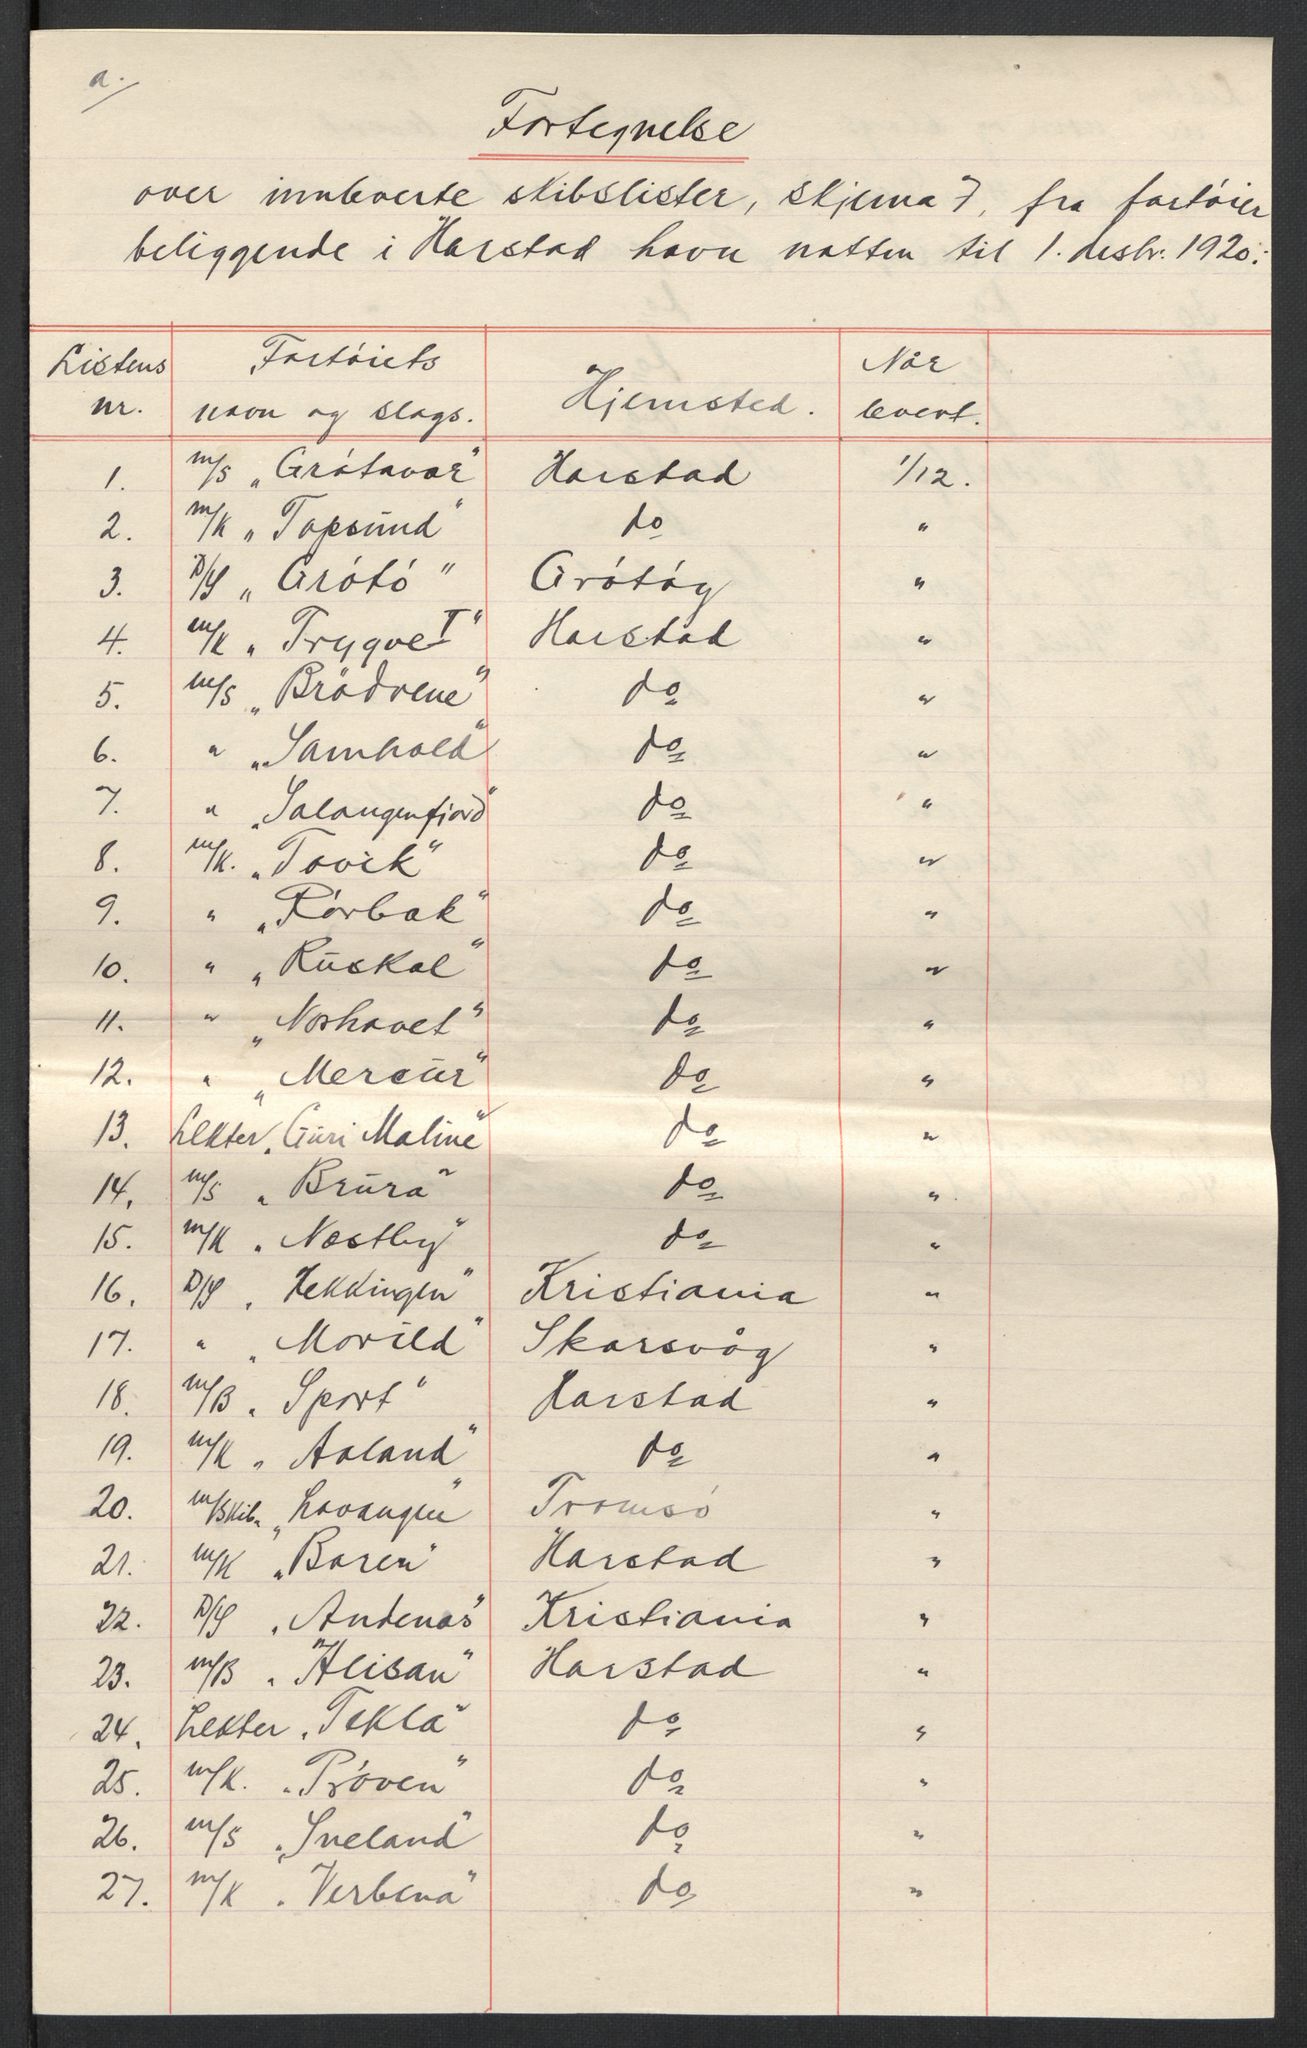 a.
Fortegnelse
over innleverte skibslister, skjema 7, fra fartöier
beliggende i Harstad havn natten til 1. desbr. 1920:
Listens nr. Fartöiets navn og slags. Hjemsted. Når levert.
1. m/s „Grötavær" Harstad 1/12.
2. m/k „Topsund" do "
3. D/S „Grötö" Grötöy "
4. m/k „Trygve I" Harstad "
5. m/s „Brödrene" do "
6. " „Samhold" do "
7. " „Salangenfjord" do "
8. m/k. „Tovik" do "
9. " „Rörbak" do "
10. " „Ruskal" do "
11. " „Norhavet" do "
12. " „Mercur" do "
13. Lekter „Guri Maline" do "
14. m/s „Brura" do "
15. m/k „Nestby" do "
16. D/S „Hekkingen" Kristiania "
17. " „Morild" Skarsvåg "
18. m/B „Sport" Harstad "
19. m/k „Aaland" do "
20. m/Skib „Lavangen" Tromsö "
21. m/k „Baren" Harstad "
22. D/S „Andenæs" Kristiania "
23. m/B „Alisan" Harstad "
24. Lekter „Tekla" do "
25. m/k. „Pröven" do "
26. m/s „Sveland" do "
27. m/k „Verbena" do "